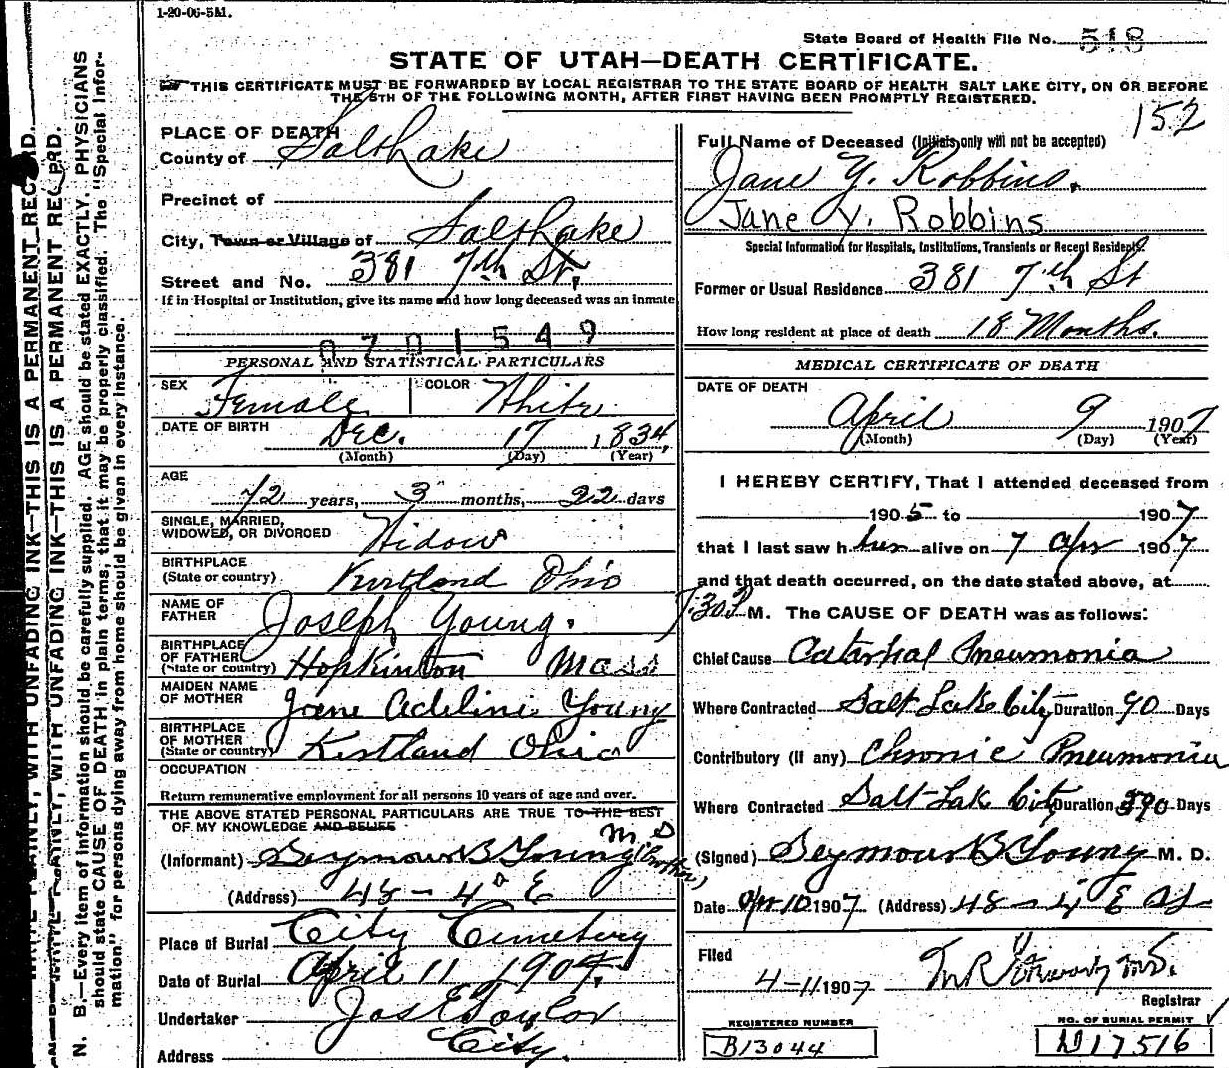 1-20-06-5M.
State Board of Health File No. 518
STATE OF UTAH—DEATH CERTIFICATE.
THIS CERTIFICATE MUST BE FORWARDED BY LOCAL REGISTRAR TO THE STATE BOARD OF HEALTH SALT LAKE CITY, ON OR BEFORE
THE 5TH OF THE FOLLOWING MONTH, AFTER FIRST HAVING BEEN PROMPTLY REGISTERED.
152
PLACE OF DEATH
County of Salt Lake
Precinct of
City, Town or Village of Salt Lake
Street and No. 381 7th St.
If in Hospital or Institution, give its name and how long deceased was an inmate
0701549
PERSONAL AND STATISTICAL PARTICULARS
SEX Female COLOR White
DATE OF BIRTH Dec. 17 1834
(Month) (Day) (Year)
AGE
72 years, 3 months, 22 days
SINGLE, MARRIED,
WIDOWED, OR DIVORCED Widow
BIRTHPLACE
(State or country) Kirtland Ohio
NAME OF
FATHER Joseph Young.
BIRTHPLACE
OF FATHER
(State or country) Hopkinton Mass
MAIDEN NAME
OF MOTHER Jane Adeline Young
BIRTHPLACE
OF MOTHER
(State or country) Kirtland Ohio
OCCUPATION
Return remunerative employment for all persons 10 years of age and over.
THE ABOVE STATED PERSONAL PARTICULARS ARE TRUE TO THE BEST
OF MY KNOWLEDGE AND BELIEF
(Informant) Seymour B Young M D (brother)
(Address) 48 – 4 E
Place of Burial City Cemetery
Date of Burial April 11 1907.
Undertaker Jos E Taylor
Address City.
Full Name of Deceased (Initials only will not be accepted)
Jane Y. Robbins.
Jane Y. Robbins
Special Information for Hospitals, Institutions, Transients or Recent Residents.
Former or Usual Residence 381 7th St
How long resident at place of death 18 Months.
MEDICAL CERTIFICATE OF DEATH
DATE OF DEATH
April 9 1907
(Month) (Day) (Year)
I HEREBY CERTIFY, That I attended deceased from
1905 to 1907
that I last saw her alive on 7 Apr 1907
and that death occurred, on the date stated above, at
7.30 P M. The CAUSE OF DEATH was as follows:
Chief Cause Catarhal Pneumonia
Where Contracted Salt Lake City Duration 90 Days
Contributory (if any) Chronic Pneumonia
Where Contracted Salt Lak City Duration 590 Days
(Signed) Seymour B Young M. D.
Date Apr 10 1907 (Address) 48 – 4 E St
Filed
4-11 1907
Registrar
REGISTERED NUMBER
B13044
NO. OF BURIAL PERMIT
D17516
N. B.—Every item of information should be carefully supplied. AGE should be stated EXACTLY. PHYSICIANS
should state CAUSE OF DEATH in plain terms, that it may be properly classified. The "Special Infor-
mation" for persons dying away from home should be given in every instance.
WRITE PLAINLY, WITH UNFADING INK—THIS IS A PERMANENT RECORD.
WRITE PLAINLY, WITH UNFADING INK—THIS IS A PERMANENT RECORD.